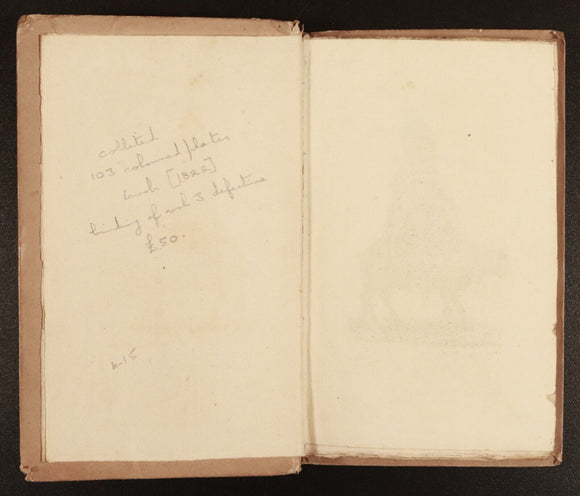 collated
103 coloured plates
6 vols [1822]
binding of vol 3 defective
£50.
A-15